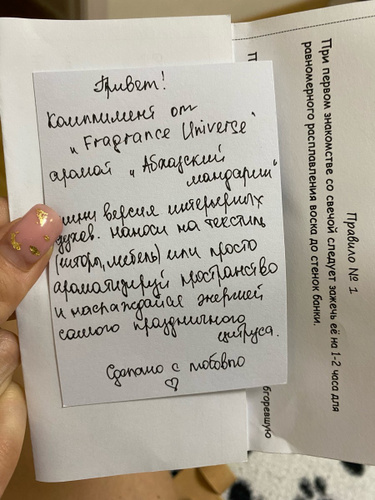 Привет!
Комплимент от
"Fragrance Universe"
аромат "Абхазский
мандарин"
мини версия интерьерных
духов. наноси на текстиль
(шторы, мебель) или просто
ароматизируй пространство
и наслаждайся энергией
самого праздничного
цитруса.
Сделано с любовью
♡
Правило № 1
При первом знакомстве со свечой следует зажечь её на 1-2 часа для
равномерного расплавления воска до стенок банки.
бгоревшую